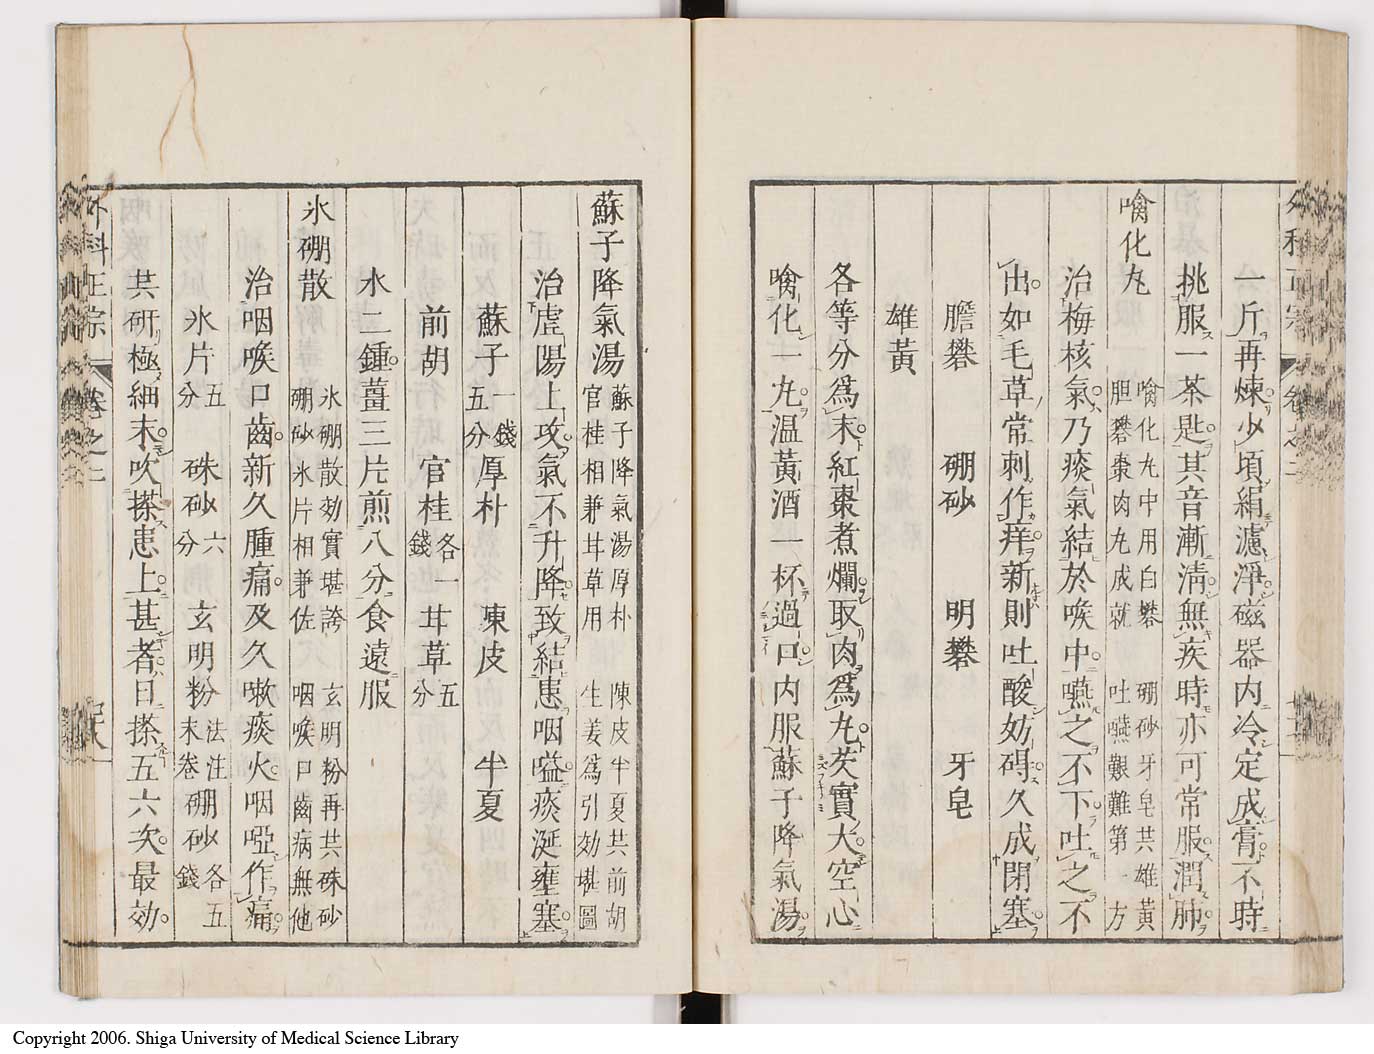 外科正宗 卷之二
一斤再煉少頃絹濾淨磁器内冷定成膏不時
挑服一茶匙其音漸清無疾時亦可常服潤肺
噙化丸 噙化丸中用白礬 硼砂牙皂共雄黃
胆礬棗肉丸成就 吐嚥艱難第一方
治梅核氣乃痰氣結於喉中嚥之不下吐之不
出如毛草常刺作痒新則吐酸妨碍久成閉塞
膽礬 硼砂 明礬 牙皂
雄黃
各等分爲末紅棗煮爛取肉爲丸芡實大空心
噙化一丸温黃酒一杯過口内服蘇子降氣湯
蘇子降氣湯 蘇子降氣湯厚朴 陳皮半夏共前胡
官桂相兼甘草用 生姜爲引効堪圖
治虛陽上攻氣不升降致結患咽嗌痰涎壅塞
蘇子一錢五分 厚朴 陳皮 半夏
前胡 官桂各一錢 甘草五分
水二鍾薑三片煎八分食遠服
氷硼散 氷硼散効實堪誇 玄明粉再共硃砂
硼砂氷片相兼佐 咽喉口齒病無他
治咽喉口齒新久腫痛及久嗽痰火咽啞作痛
氷片五分 硃砂六分 玄明粉法注末卷 硼砂各五錢
共研極細末吹搽患上甚者日搽五六次最効
外科正宗 卷之二
Copyright 2006. Shiga University of Medical Science Library